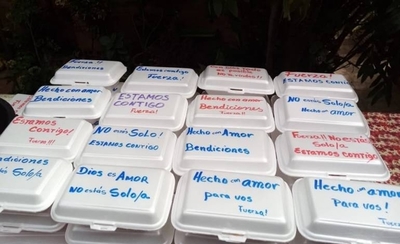 Fuerza!!!
Bendiciones
Estamos contigo
Fuerza!
Fuerza!
ESTAMOS CONTIGO
Hecho con amor
Bendiciones
ESTAMOS
CONTIGO
Fuerza!
Hecho con amor
Bendiciones
Fuerza!
NO estás Solo/a
ESTAMOS CONTIGO
Estamos
Contigo!
Fuerza!!!
NO estás Solo!
ESTAMOS CONTIGO
Hecho con AMOR
Bendiciones
Fuerza!! No estás Solo
ESTAMOS CONTIGO
Bendiciones
No estás Solo/a
Dios es AMOR
NO estás Solo/a
Hecho con amor
para vos
Fuerza!
Hecho con amor
para vos!
Fuerza!